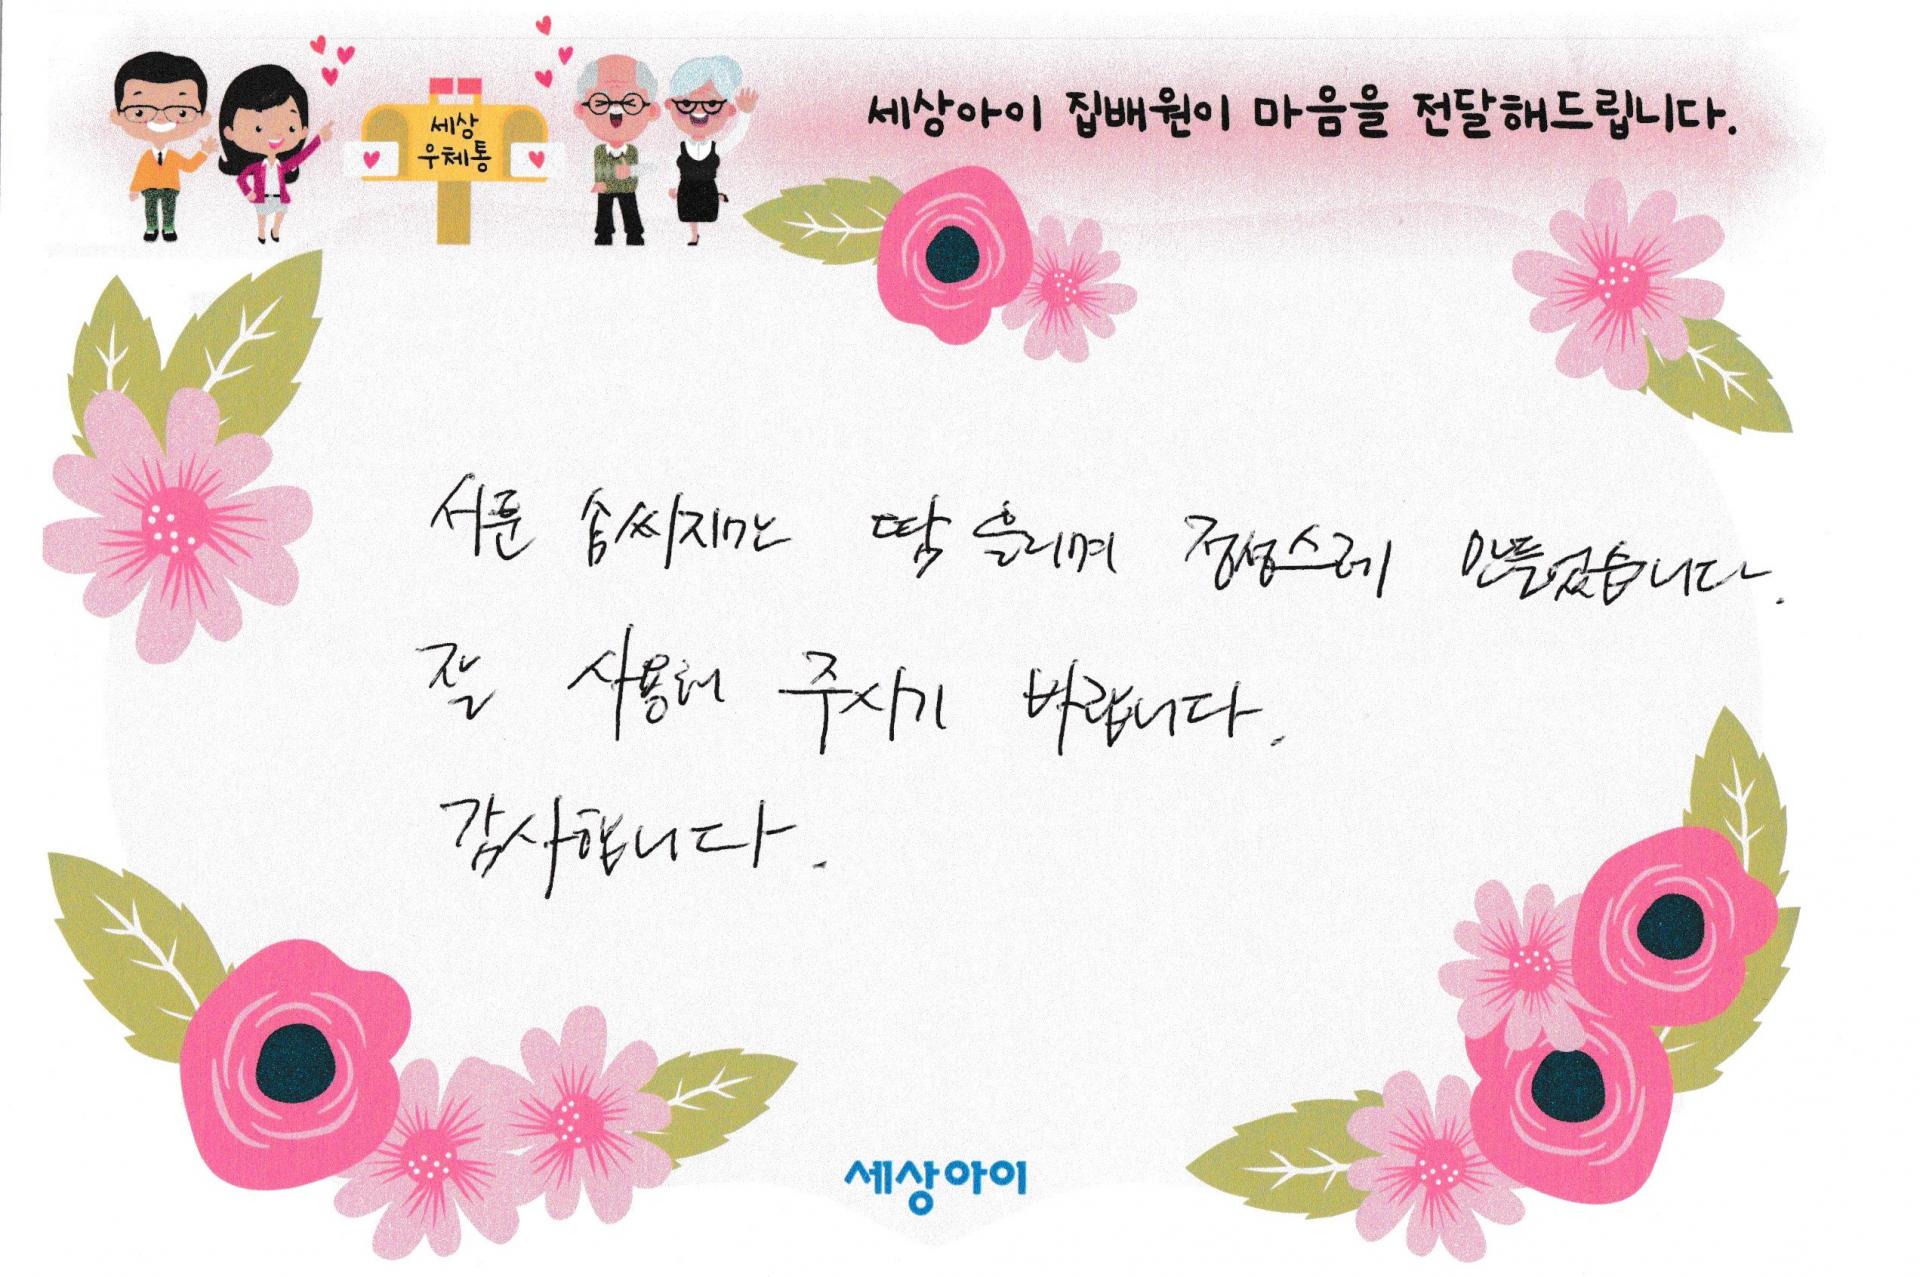 세상아이 집배원이 마음을 전달해드립니다.
세상
우체통
서툰 솜씨지만 땀 흘리며 정성스레 만들었습니다.
잘 사용해 주시기 바랍니다.
감사합니다.
세상아이